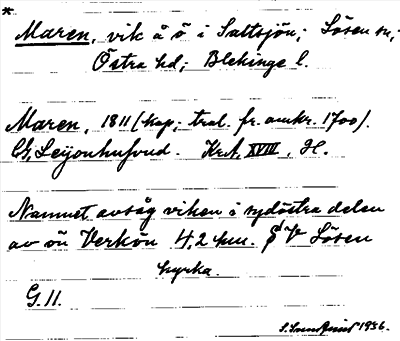 * Maren, vik å ö i Saltsjön; Lösen sn;
Östra hd; Blekinge l.
Maren, 1811 (kop; trol. fr. omkr. 1700).
G. Leijonhufvud. KrA. XVIII, H.
Namnet avsåg viken i sydöstra delen
av ön Verkön 4,2 km. SV Lösen
kyrka.
G. 11.
1936.